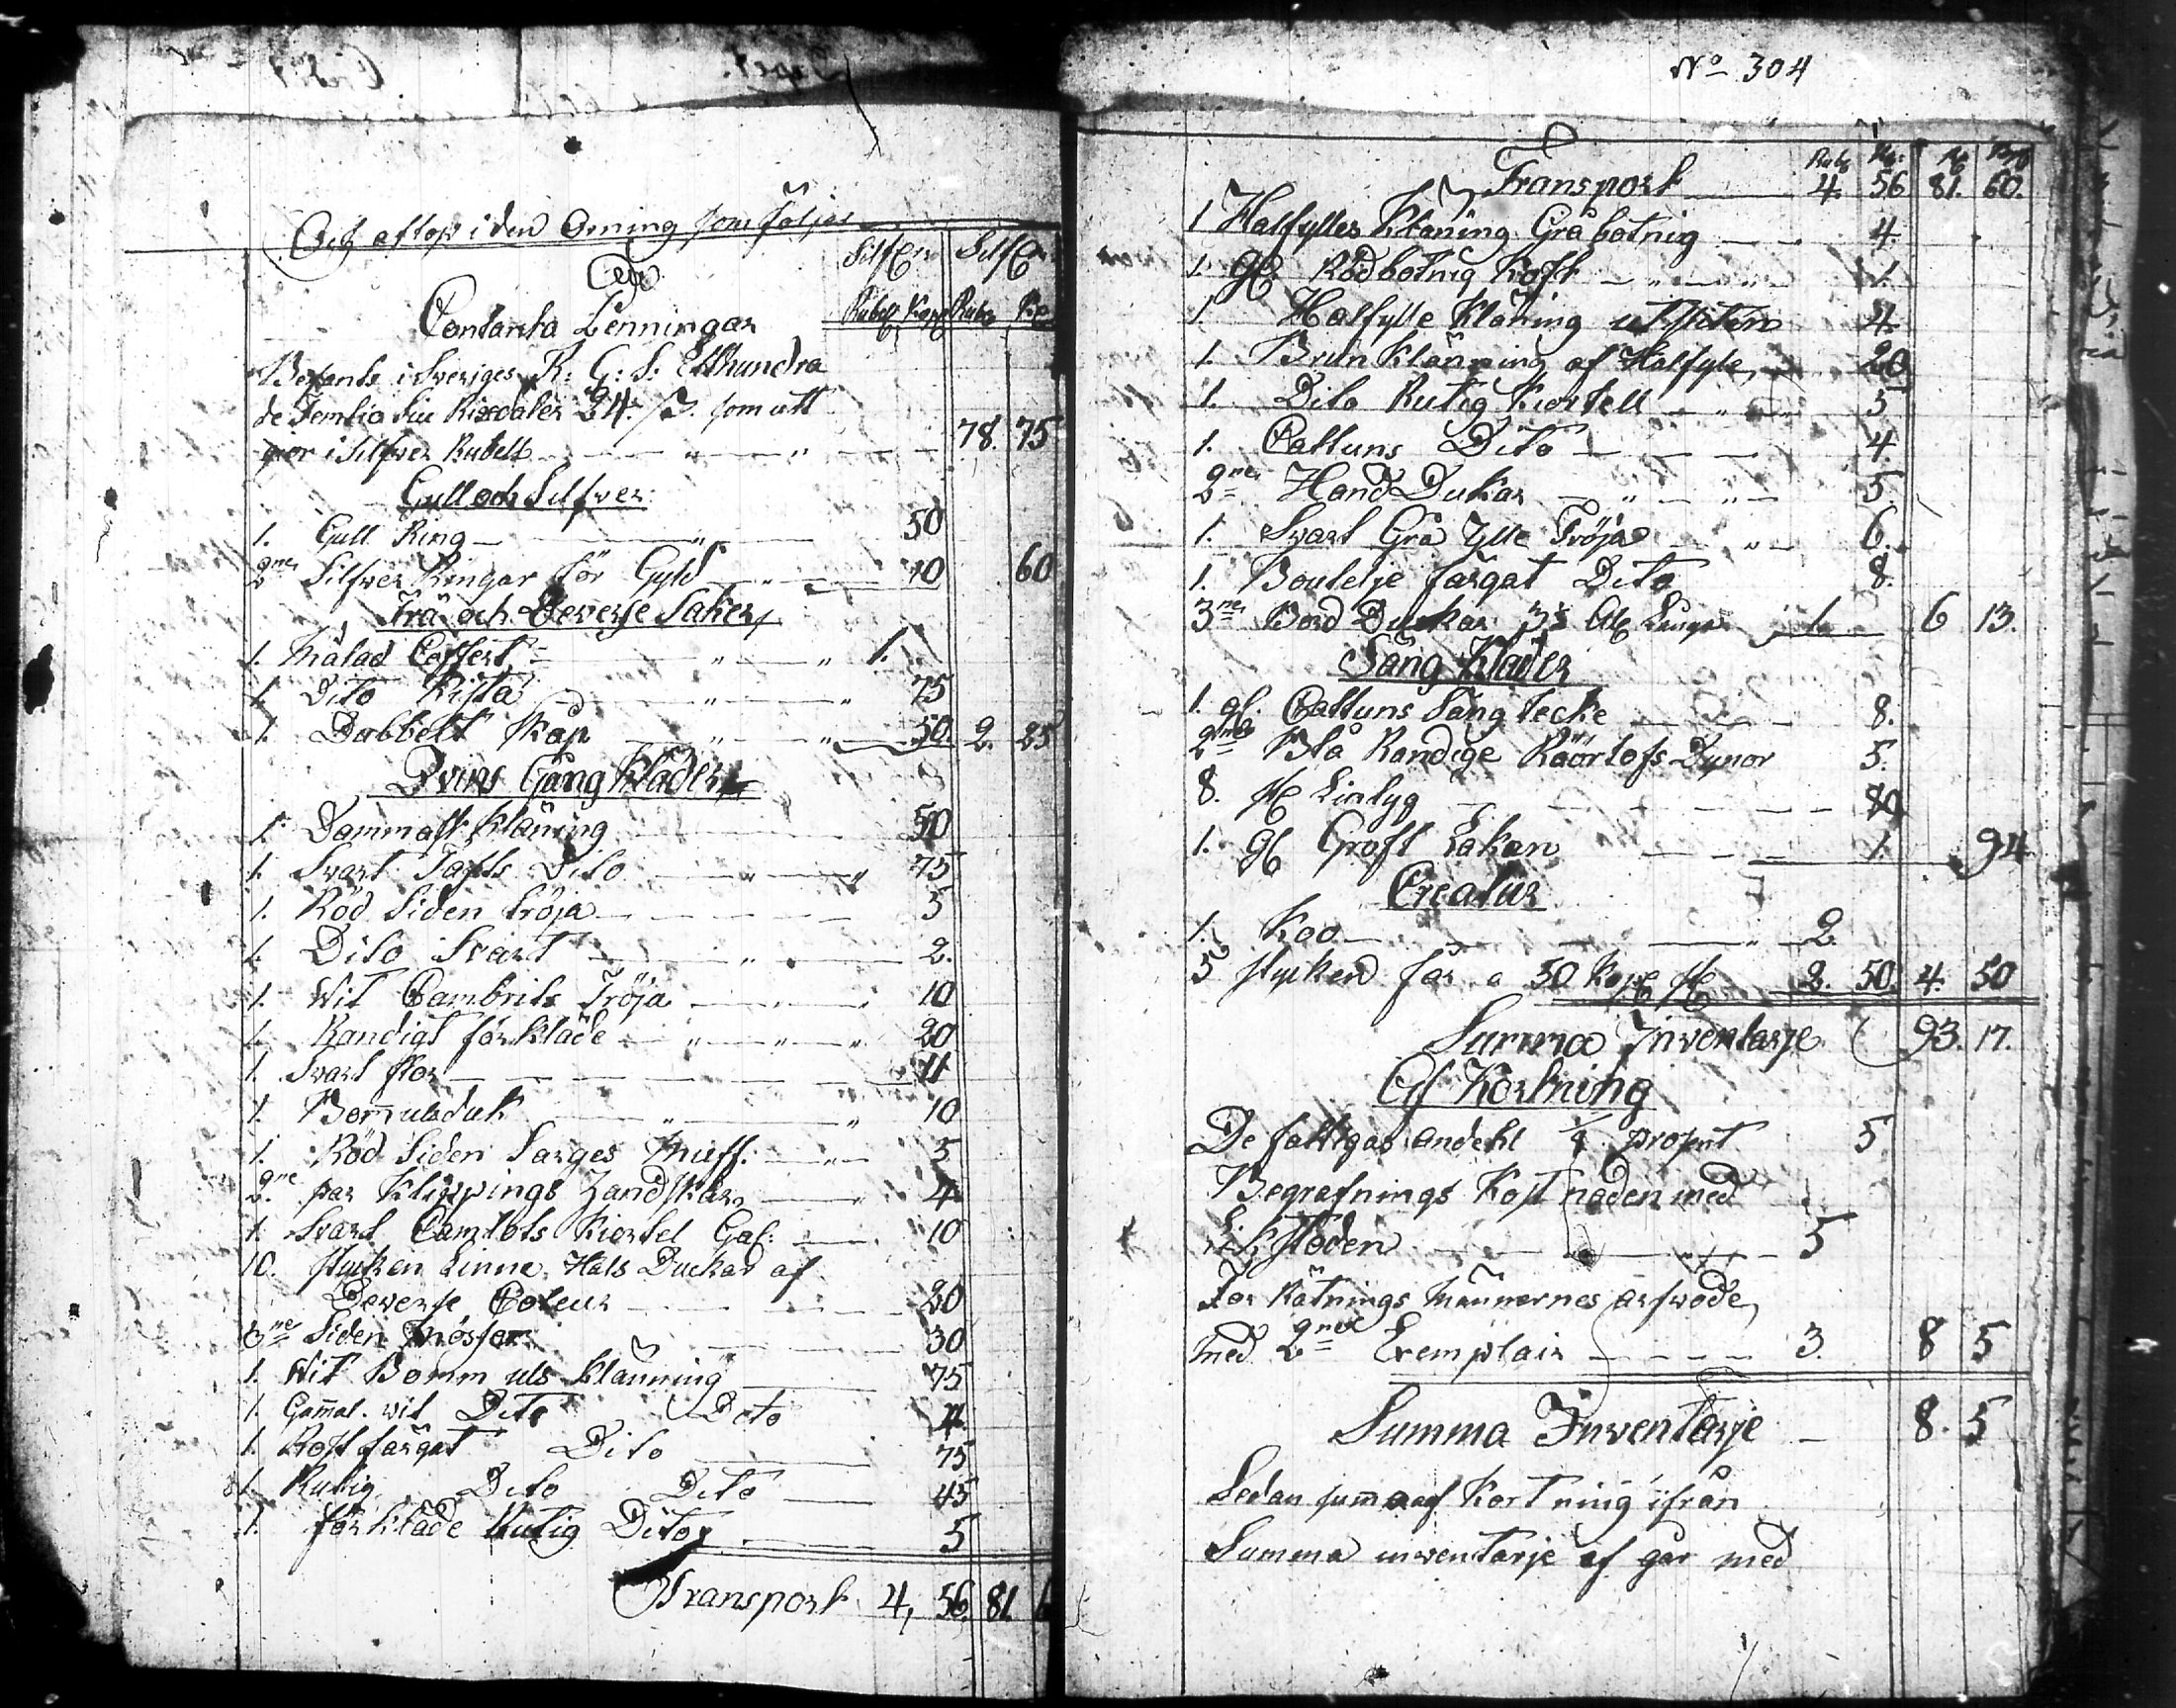 Och eftop i den Orning som följer
Silfver Silfver
Contanta Penningar Rubell Kop Rube Ko
Befants i Sveriges R: G: S: Etthundra
de Femtio Siu Rixdaler 24 ß som utt
giör i Silfver Rubell 78. 75
Gull och Silfver
1. Gull Ring 50
2ne Silfver Ringar för Gyld 10 60
Trä och Deverse Saker
1. Målad Coffert 1.
1. Dito Kista 75
1. Dobbelt Skåp 50. 2. 25
Qvins Gång Kläder
1. Dammast Kläning 50
1. Svart Tafts Dito 75
1. Röd Siden Tröja 5
1. Dito Svart 2.
1. Wit Cambrits Tröja 10
1. Randigt förkläde 20
1. Svart flor 11
1. Bom̄ulsduk 10
1. Röd Siden Sarges Muff. 5
2ne par Klippings Handskar 4
1. Svart Camlots Kiortel Gal: 10
10. stycken Linne Hals Duckar af
Deverse Coleur 20
3ne Siden Mössor 30
1. Wit Bomm uls Klänning 75
1. Gam̄al. wit Dito Dito 4
1. Rostfärgat Dito 75
1. Rutig Dito Dito 45
1. förkläde Rutig Dito 5
Transport 4, 56, 81
No 304
Rube Ko: Ro Ko
Transport 4. 56 81. 60.
1 Halfylles Kläning Gråbotnig 4.
1. gl Rödbotnig Koft 1.
1. Halfylle Kläning utsliten 4.
1. Brun Klänning af Halfyle 20
1. Dito Rutig Kiortell 5
1. Cattuns Dito 4.
2ne Hand Dukar 5.
1. Svart Grå Ylle Tröja 6.
1. Boutelje färgat Dito 8.
3ne Bord Duckar 3½ Al Långa 1. 6 13.
Säng Kläder
1. gl. Cattuns Säng tecke 8.
2ne Blå Randige Dynor 5.
8. st Linlyg 80
1. gl Groft Lakan 1. 94
Creatur
1. Koo 2.
5 stycken får a 50 Kope st 2. 50. 4. 50
Summa Inventarje 93. 17.
Af Kortning
De fattigas andehl ⅛ prosnt 5
Begrafnings Kostnaden med
Likstoden 5
För Rätnings Männernes arfwode,
med 2ne Exemplair 3. 8 5
Summa Inventarje 8. 5
Sedan sum̄a af Kortning ifrån
Summa inventarje af går med